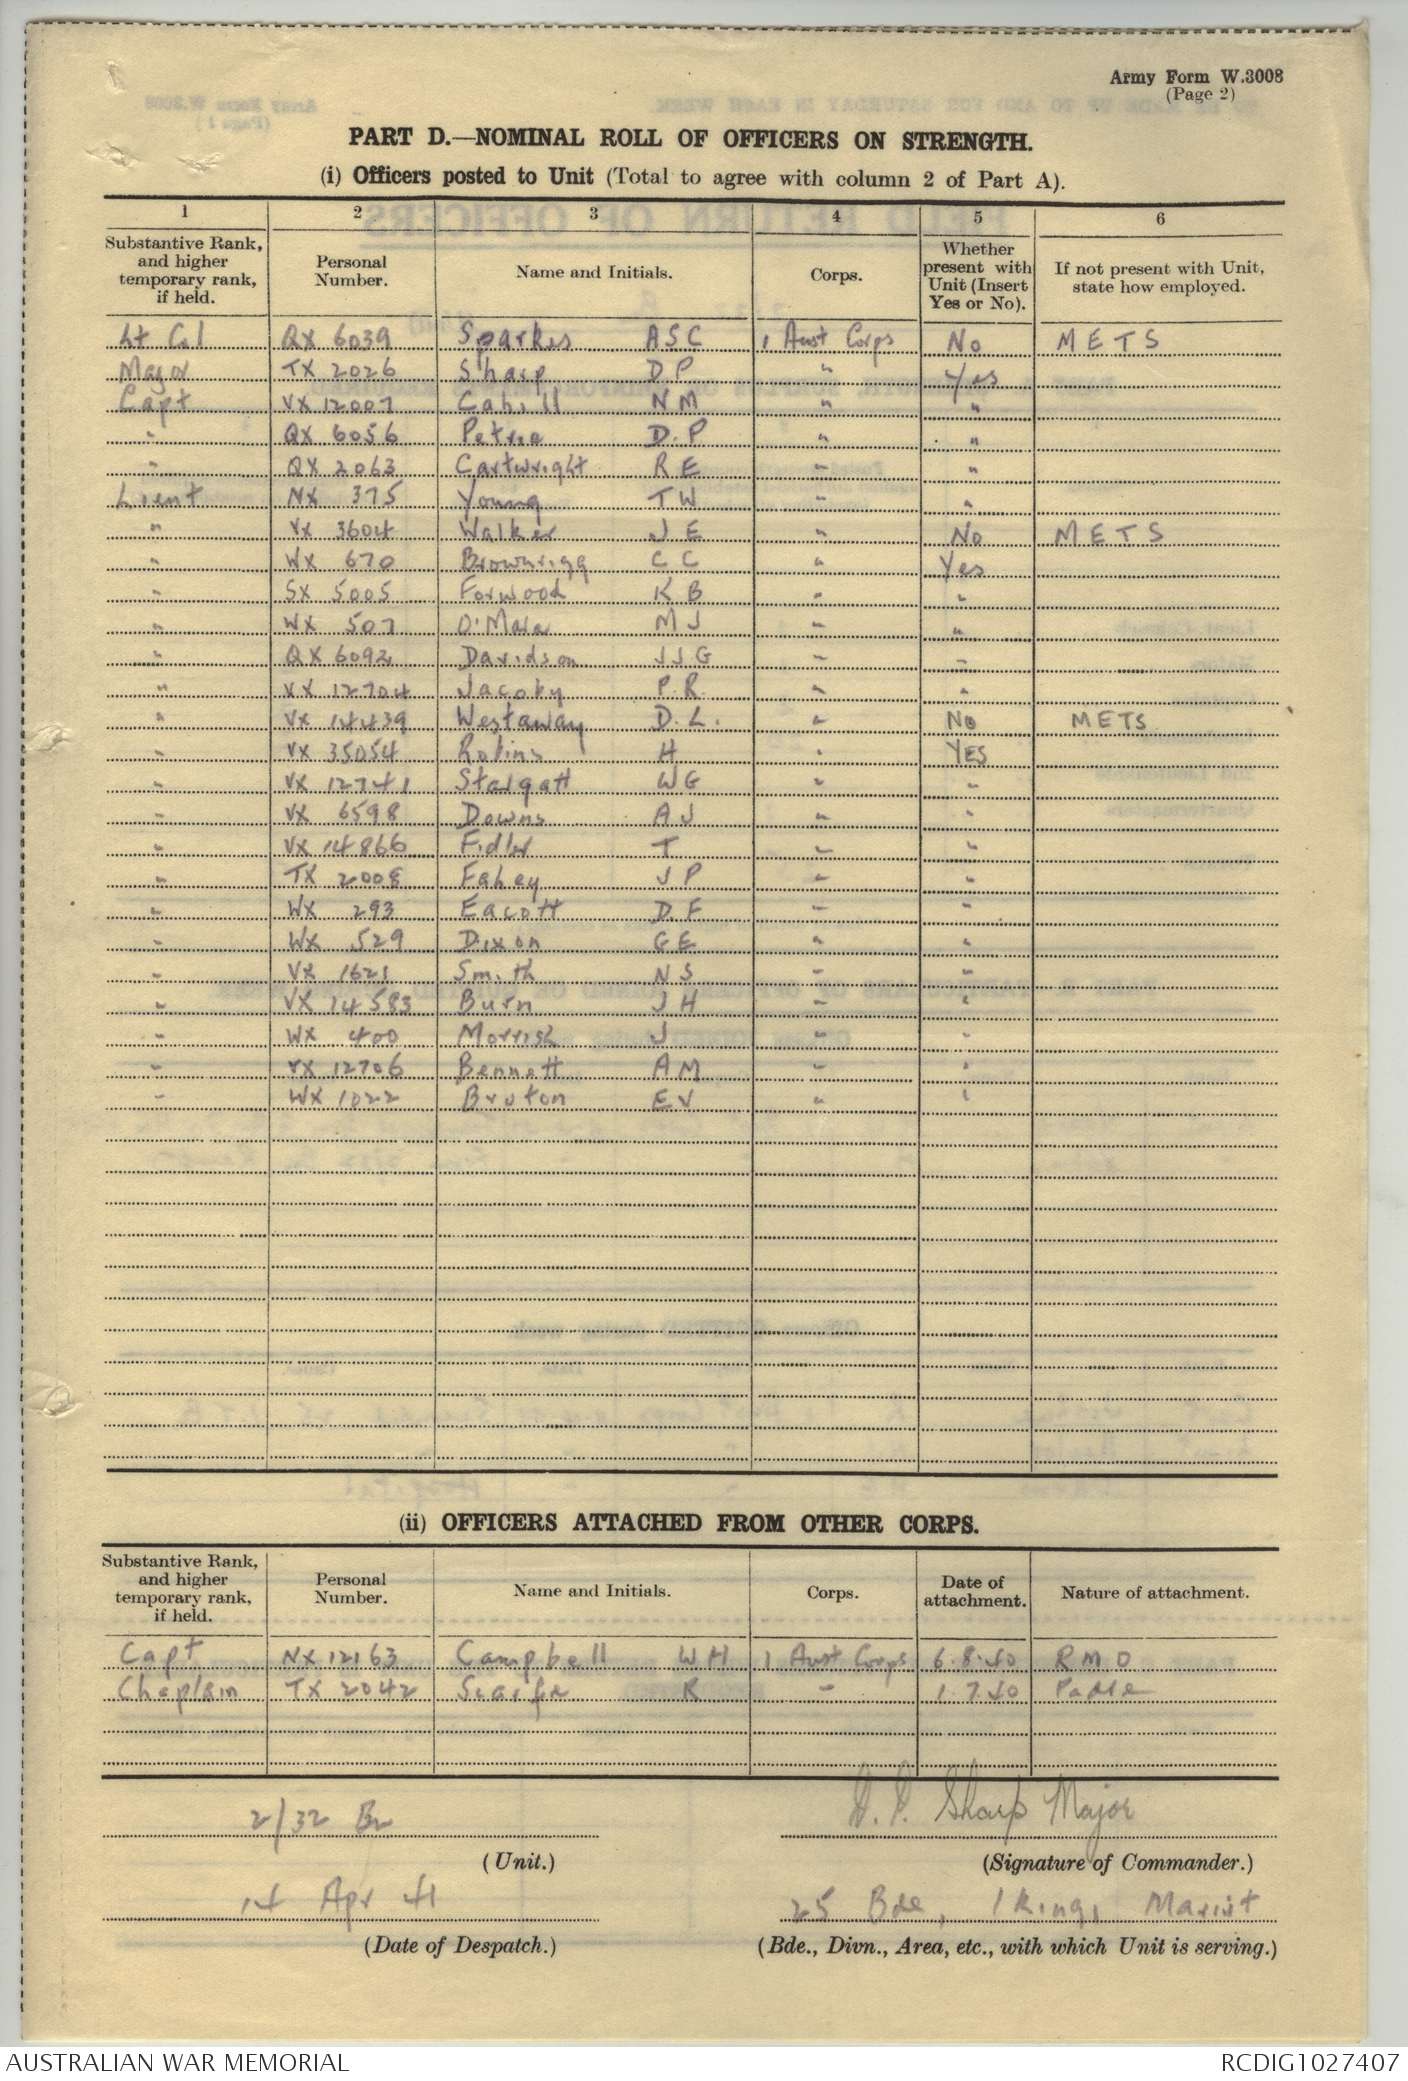 Army Form W.3008
(Page 2)
PART D.—NOMINAL ROLL OF OFFICERS ON STRENGTH.
(i) Officers posted to Unit (Total to agree with column 2 of Part A).
1 2 3 4 5 6
Substantive Rank, and higher temporary rank, if held. Personal Number. Name and Initials. Corps. Whether present with Unit (Insert Yes or No). If not present with Unit, state how employed.
Lt Col QX 6039 Sparkes ASC 1 Aust Corps No METS
Major TX 2026 Sharp D P " Yes
Capt VX 12007 Cahill N M " "
" QX 6056 Petrie D.P " "
" QX 2063 Cartwright R E " "
Lieut NX 375 Young T W " "
" VX 3604 Walker J E " No METS
" WX 670 Brownrigg C C " Yes
" SX 5005 Forwood K B " "
" WX 507 O'Mara M J " "
" QX 6092 Davidson J J G " "
" VX 12704 Jacoby P.R. " "
" VX 14439 Westaway D.L. " No METS
" VX 35054 Robins H " YES
" VX 12741 Stalgatt W G " "
" VX 6598 Downs A J " "
" VX 14866 Fidler T " "
" TX 2008 Fahey J P " "
" WX 293 Eacott D F " "
" WX 529 Dixon G E " "
" VX 1621 Smith N S " "
" VX 14583 Burn J H " "
" WX 400 Morrish J " "
" VX 12706 Bennett A M " "
" WX 1022 Bruton E V " "
(ii) OFFICERS ATTACHED FROM OTHER CORPS.
Substantive Rank, and higher temporary rank, if held. Personal Number. Name and Initials. Corps. Date of attachment. Nature of attachment.
Capt NX 12163 Campbell W H 1 Aust Corps 6.8.40 R M O
Chaplain TX 2042 Scarfe R " 1.7.40 Padre
2/32 Bn D. P. Sharp Major
(Unit.) (Signature of Commander.)
14 Apr 41 25 Bde, Marist
(Date of Despatch.) (Bde., Divn., Area, etc., with which Unit is serving.)
AUSTRALIAN WAR MEMORIAL RCDIG1027407